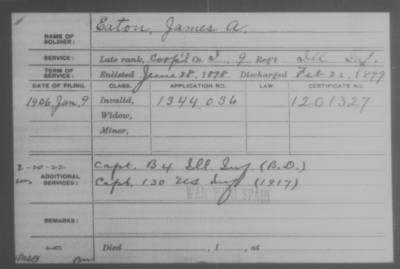 Eaton, James A.
NAME OF SOLDIER:
SERVICE: Late rank, Corp'l Co. I, 9 Reg't Ill Inf.
TERM OF SERVICE: Enlisted June 28, 1898 Discharged Feb 22, 1899
DATE OF FILING. CLASS. APPLICATION NO. LAW. CERTIFICATE NO.
1906, Jan, 9 Invalid, 1344,036 1201327
Widow,
Minor,
2-20-22 Capt. B 4 Ill Inf (B.D.)
ADDITIONAL SERVICES: Capt. 130 US Inf (1917)
WAR WITH SPAIN
REMARKS:
Died , 1 , at